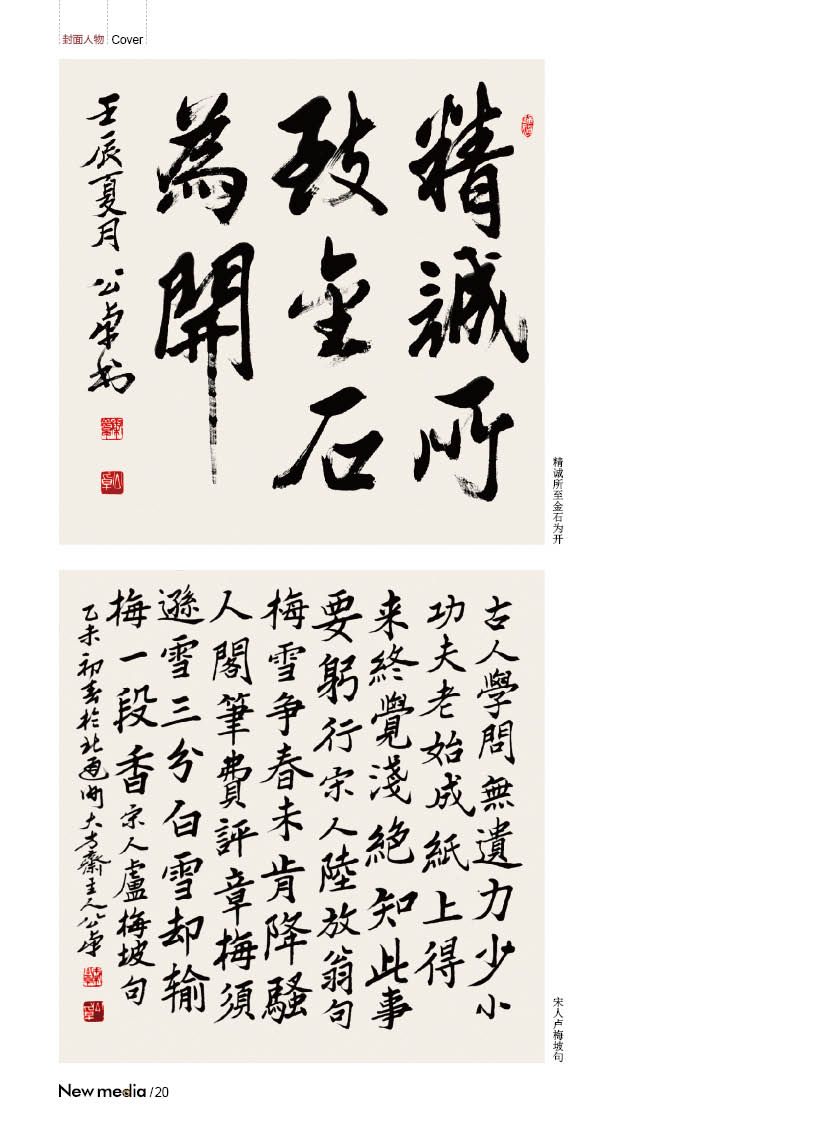 封面人物 Cover
精誠所
致金石
為開
壬辰夏月 公卓书
精诚所至金石为开
古人學問無遺力少小
功夫老始成紙上得
来終覺淺絕知此事
要躬行宋人陸放翁句
梅雪争春未肯降騷
人閣筆費評章梅須
遜雪三分白雪却输
梅一段香宋人盧梅坡句
乙未初春於北通州大方齋主人公卓
宋人卢梅坡句
New media /20